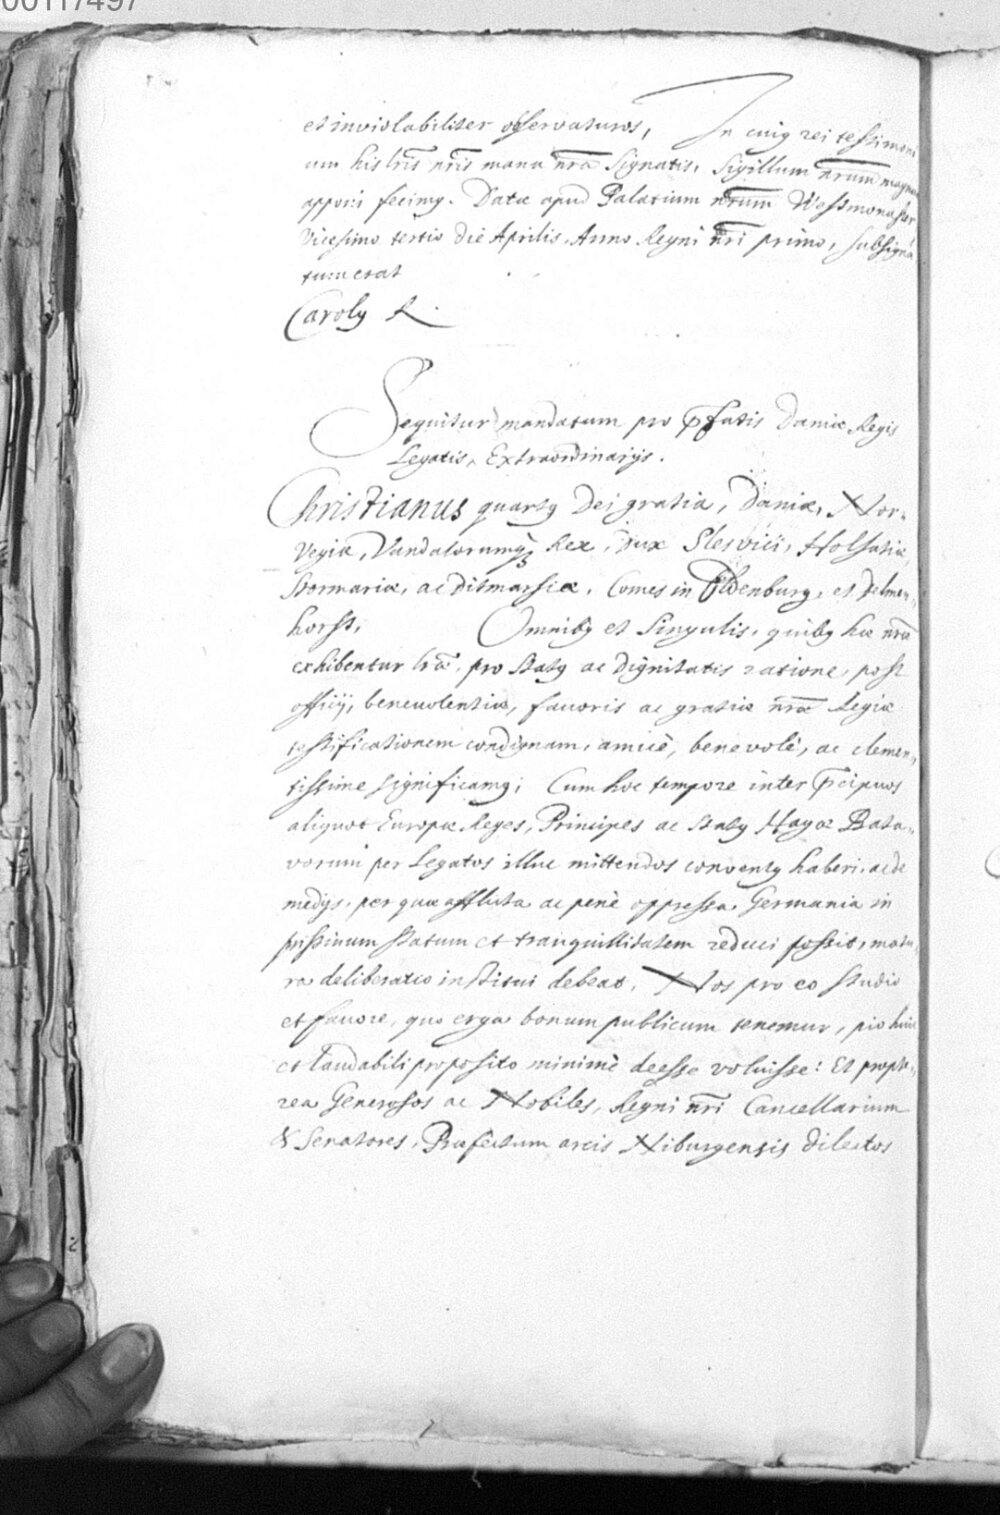 00117497
et inviolabiliter observaturos, In cuiꝰ rei testimoni
um his lr̄is nr̄is manu nr̄a signatis, Sigillum nr̄um magnū
apponi fecimꝰ. Datæ apud Palatium nr̄um Westmonaster
Vicesimo tertio die Aprilis Anno Regni nr̄i primo, subsigna
tum erat
Carolꝰ R.
Sequitur mandatum pro p̄fatis Daniæ Regis
Legatis, Extraordinarijs.
Christianus quartꝰ Dei gratia, Daniæ, Nor-
vegiæ, Vandalorumqꝫ Rex, Dux Slesvici, Holsatiæ
Stormariæ, ac Ditmarsiæ, Comes in Oldenburg, et Delmen-
horst, Omnibꝰ et Singulis, quibꝰ hæ nr̄æ
exhibentur lr̄æ, pro statꝰ ac dignitatis ratione, post
officij, benevolentiæ, favoris ac gratiæ nr̄æ Regiæ
testificationem condignam, amicè, benevolè, ac clemen-
tissime significamꝰ; Cum hoc tempore inter p̄cipuos
aliquot Europæ Reges, Principes ac Statꝰ Hagæ Bata-
vorum per Legatos illuc mittendos conventꝰ haberi, ac de
medijs, per quæ afflicta ac penè oppressa Germania in
pristinum statum et tranquillitatem reduci possit, matu
ra deliberatio institui debeat, Nos pro eo studio
et favore, quo erga bonum publicum tenemur, pio huic
et laudabili proposito minimè deesse voluisse: Et propte-
rea Generosos ac Nobiles, Regni nr̄i Cancellarium
& Senatores, Præfectum arcis Niburgensis dilectos